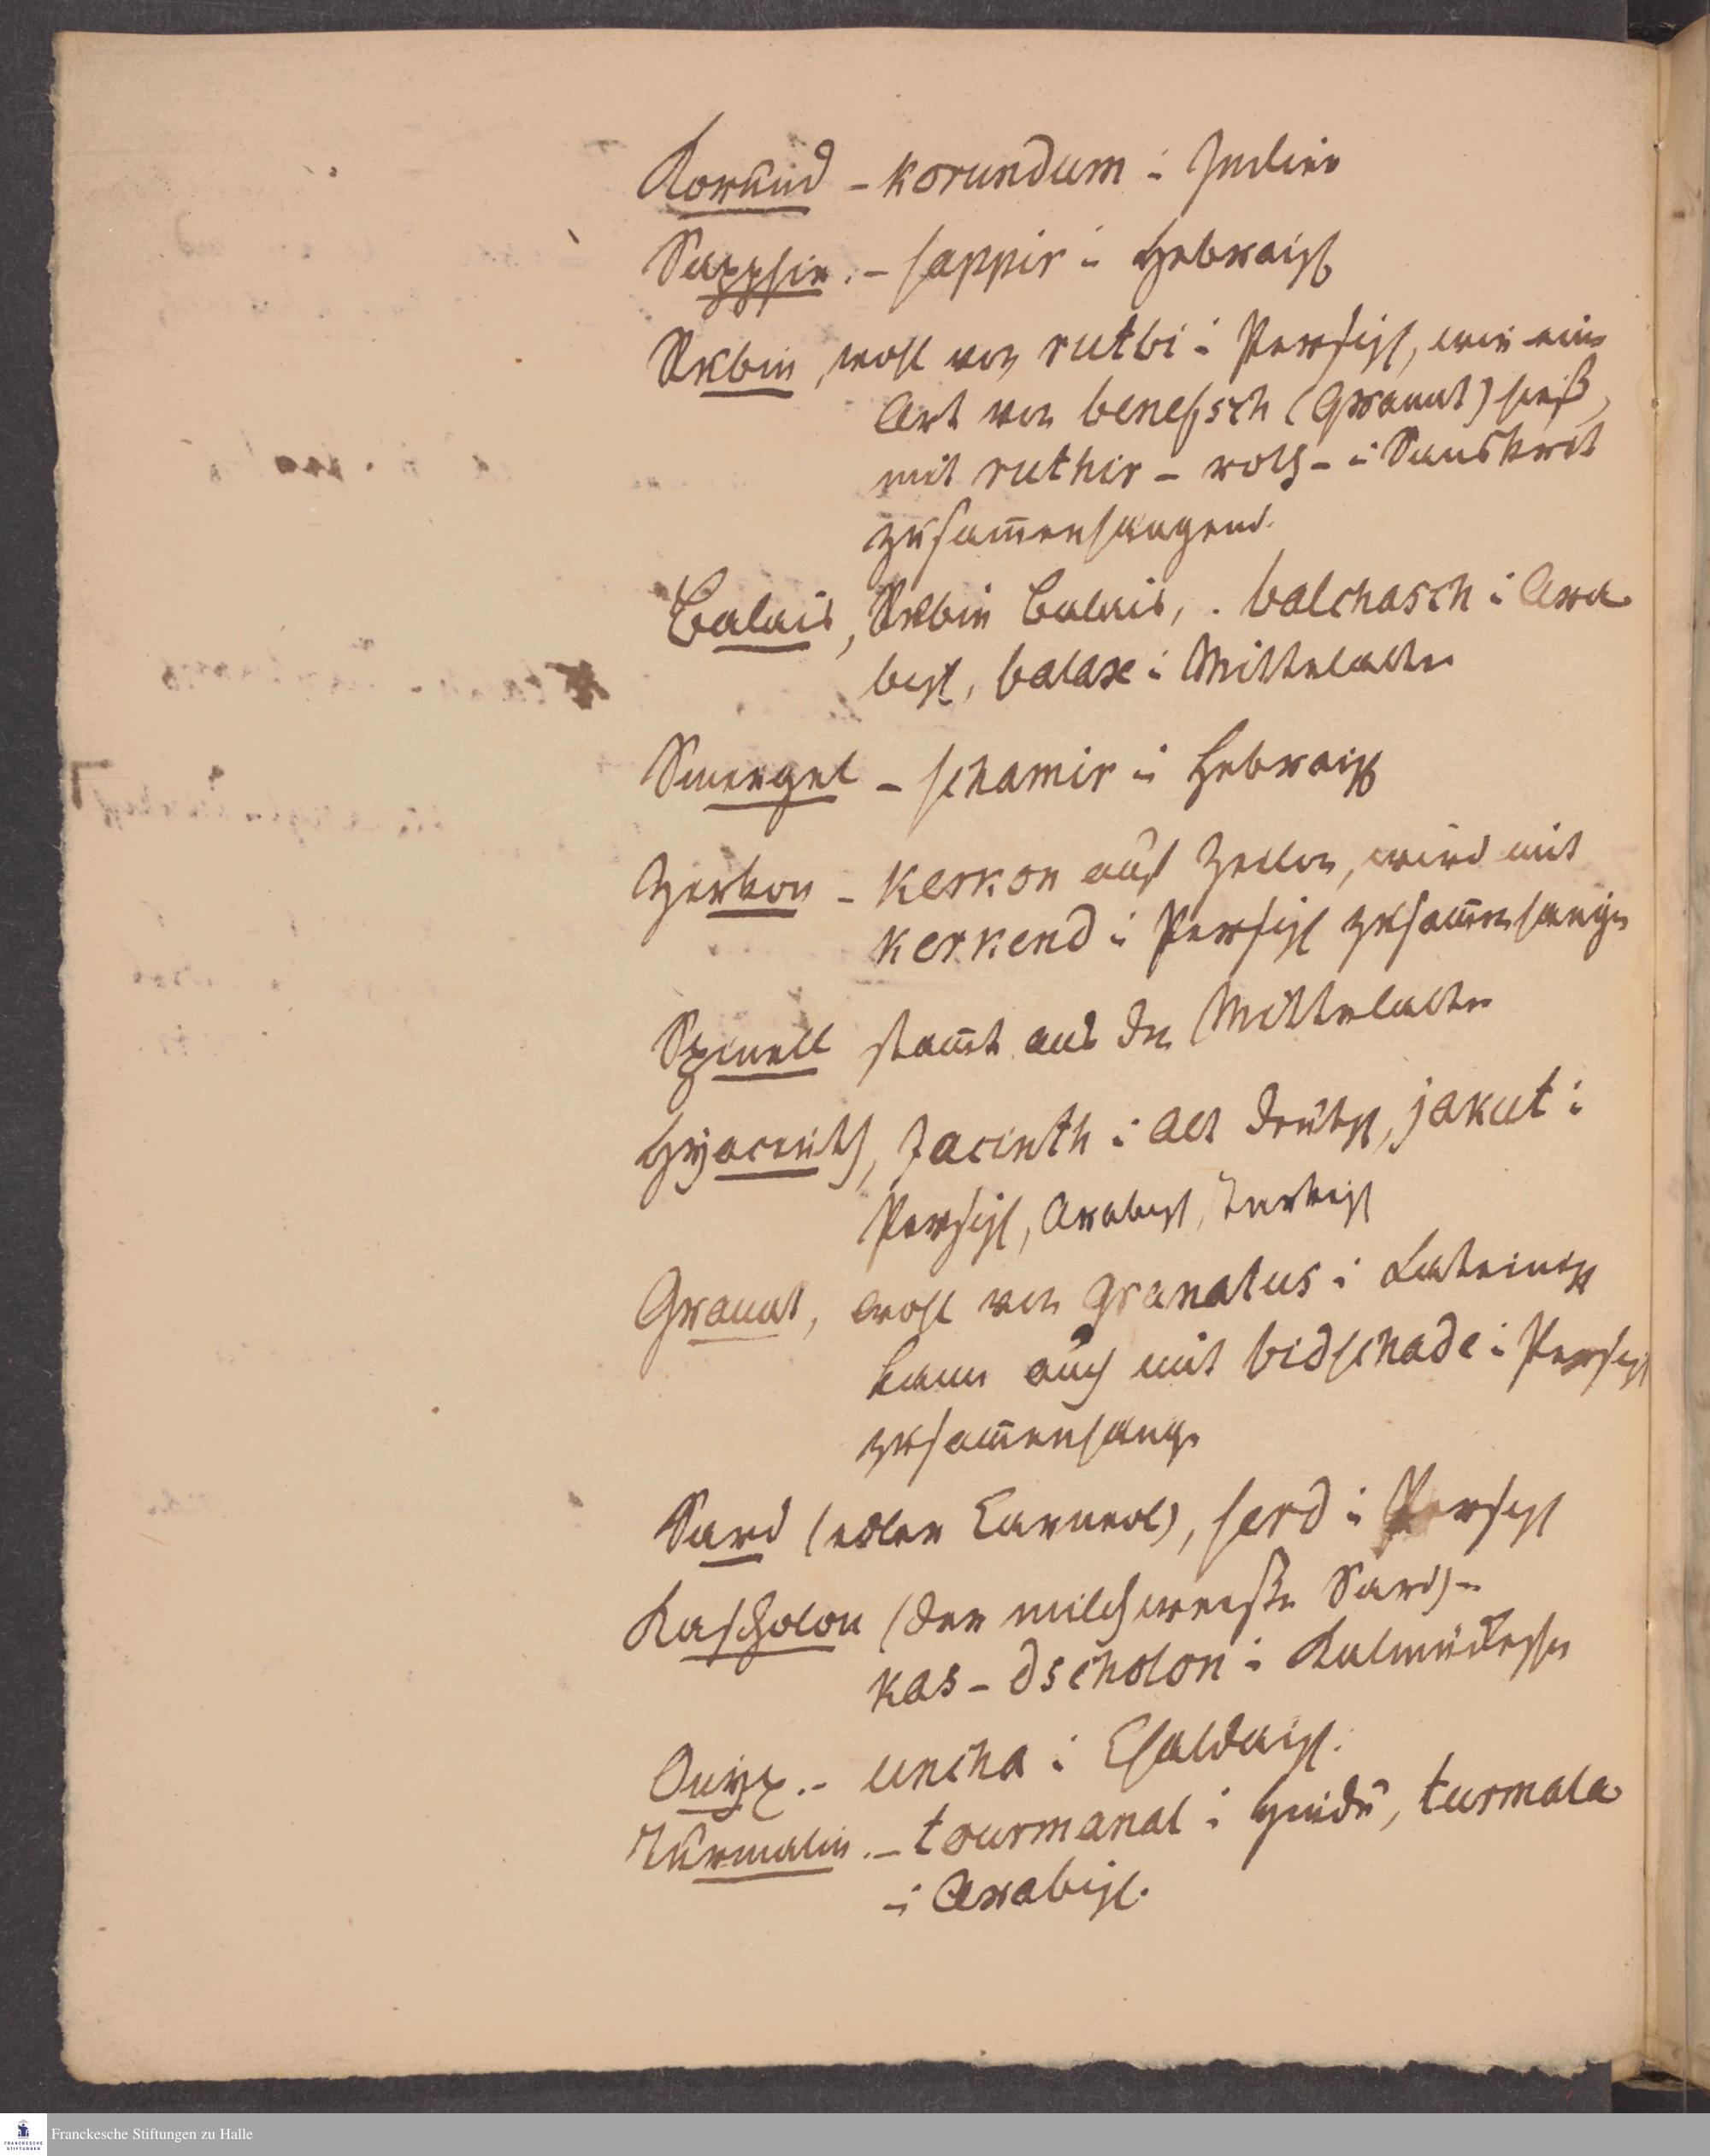 Korund - korundum i Indien
Sapphir. - sappir i Hebraisch
Rubin, wohl von rutbi i Persisch, wie eine
Art von benefsch (Granat) heißt,
mit ruthir - roth - i Sanskrit
zusam̄enhangend.
Balais, Rubin Balais, . balchasch i Ara
bisch, balax i Mittelalter
Smergel - schamir i Hebraisch
Zerkon - kerkon auf Zeilon, wird mit
kerkend i Persisch zusam̄enhangen
Spinell stam̄t aus dem Mittelalter
Hyacinth, Jacinth i alt deutsch, jakut i
Persisch, Arabisch, Turkisch
Granat, wohl von granatus i Lateinisch
kann auch mit bidschade i Persisch
zusam̄enhangen
Sard (edler Carneol), serd i Persisch
Kascholon (der milchweiße Sard) -
kas-dscholon i Kalmückischen
Onyx. - uncha i Chaldaisch.
Turmalin. - tourmanal i Hindu, turmala
i Arabisch.
Franckesche Stiftungen zu Halle
FRANCKESCHE
STIFTUNGEN